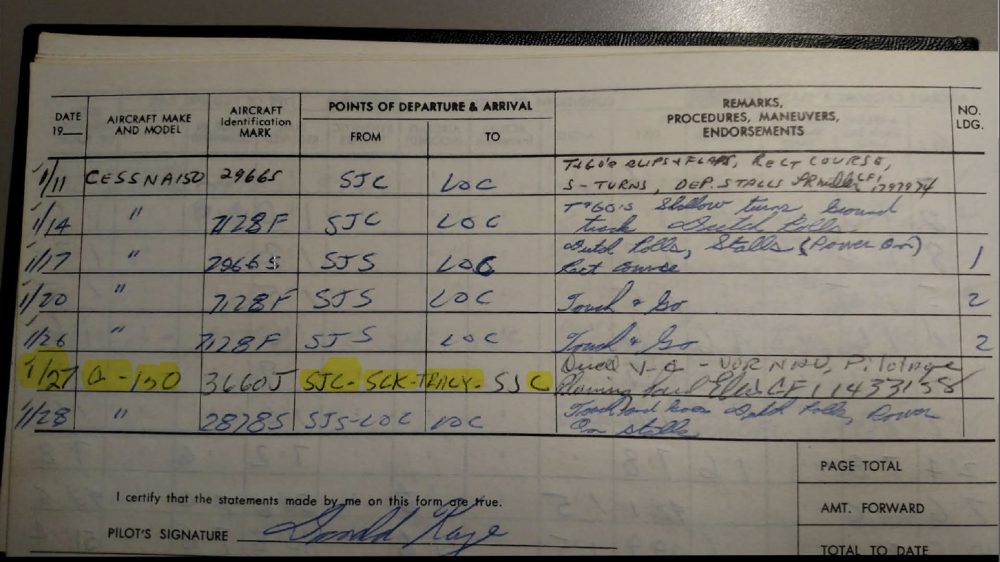 DATE 19__ AIRCRAFT MAKE AND MODEL AIRCRAFT Identification MARK POINTS OF DEPARTURE & ARRIVAL FROM TO REMARKS, PROCEDURES, MANEUVERS, ENDORSEMENTS NO. LDG.
1/11 CESSNA150 2966S SJC LOC T+GO'S SLIPS + FLAPS, RECT COURSE,
S-TURNS, DEP. STALLS CFI 1797974
1/14 " 7128F SJC LOC T+GO'S Shallow turns, Ground
track Dutch Rolls
1/17 " 2966S SJS LOC Dutch Rolls, Stalls (Power On) 1
Rect course
1/20 " 7128F SJS LOC Touch & Go 2
1/26 " 7128F SJS LOC Touch & Go 2
1/27 C-150 3660J SJC-SCK-TRACY-SJC Dual - VOR NAV, Pilotage
CFI 1433158
1/28 " 2878S SJS-LOC LOC Dutch Rolls, Power
On stalls
PAGE TOTAL
I certify that the statements made by me on this form are true.
AMT. FORWARD
PILOT'S SIGNATURE Donald Kaye
TOTAL TO DATE